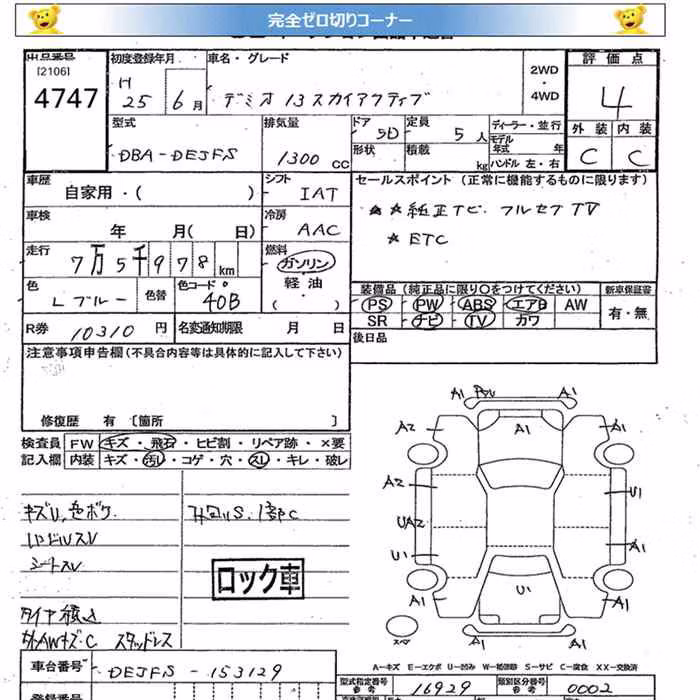 完全ゼロ切りコーナー
出品番号
[2106]
4747
初度登録年月
H 25 6 月
車名・グレード
デミオ 13 スカイアクティブ
2WD
・
4WD
評価点
4
外装 内装
C C
型式
DBA-DEJFS
排気量
1300 CC
ドア
5D
形状
定員
5 人
積載
kg
ディーラー・並行
モデル
年式 年
ハンドル 左・右
車歴
自家用・( )
シフト
IAT
セールスポイント (正常に機能するものに限ります)
★★純正ナビ フルセグTV
★ETC
車検
年 月( 日)
冷房
AAC
走行
7万5千978km
燃料
ガソリン
軽油
( )
色
Lブルー
色替
色コード
40B
装備品 (純正品に限り○をつけてください)
PS PW ABS エアB AW
SR ナビ TV カワ
新車保証書
有・無
R券 10310 円
名変通知期限 月 日
後日品
注意事項申告欄 (不具合内容等は具体的に記入して下さい)
修復歴 有 〔箇所 〕
検査員
記入欄
FW キズ・飛石・ヒビ割・リペア跡・×要
内装 キズ・汚レ・コゲ・穴・スレ・キレ・破レ
キズU,色ボケ.
シートスレ
タイヤ積込
外AWキズ・C スタッドレス
ロック車
A1 A1
A2 A1 A1
A2 U1
UA2
U1 A1
U1
A1 A1
スペア
A-キズ E-エクボ U-凹み W-補修跡 S-サビ C-腐食 XX-交換済
車台番号
DEJFS - 153129
型式指定番号
参考
16929
類別区分番号
参考
0002
登録番号